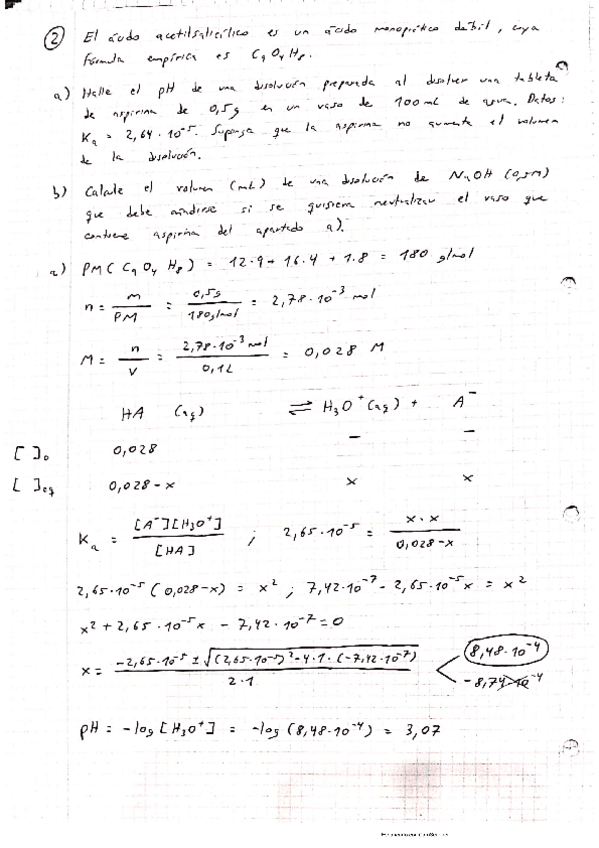 ② El ácido acetilsalicílico es un ácido monoprótico débil, cuya
fórmula empírica es C9O4H8.
a) Halle el pH de una disolución preparada al disolver una tableta
de aspirina de 0,5g en un vaso de 100mL de agua. Datos:
Ka = 2,64·10⁻⁵. Suponga que la aspirina no aumenta el volumen
de la disolución.
b) Calcule el volumen (mL) de una disolución de NaOH (0,5M)
que debe añadirse si se quisiera neutralizar el vaso que
contiene aspirina del apartado a).
a) PM(C9O4H8) = 12·9 + 16·4 + 1·8 = 180 g/mol
n = m/PM = 0,5g/180g/mol = 2,78·10⁻³ mol
M = n/V = 2,78·10⁻³ mol/0,1L = 0,028 M
HA (aq) ⇌ H3O⁺(aq) + A⁻
[ ]o 0,028 – –
[ ]eq 0,028-x x x
Ka = [A⁻][H3O⁺]/[HA] ; 2,65·10⁻⁵ = x·x/0,028-x
2,65·10⁻⁵ (0,028-x) = x² ; 7,42·10⁻⁷ - 2,65·10⁻⁵x = x²
x² + 2,65·10⁻⁵x - 7,42·10⁻⁷ = 0
x = -2,65·10⁻⁵ ± √(2,65·10⁻⁵)² - 4·1·(-7,42·10⁻⁷)/2·1 8,48·10⁻⁴
-8,74·10⁻⁴
pH = -log[H3O⁺] = -log(8,48·10⁻⁴) = 3,07